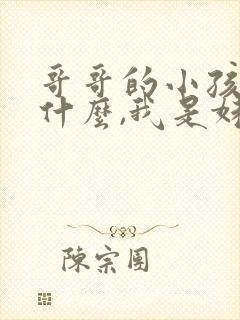 哥哥的小孩
什麼,我是妹
陳宗團